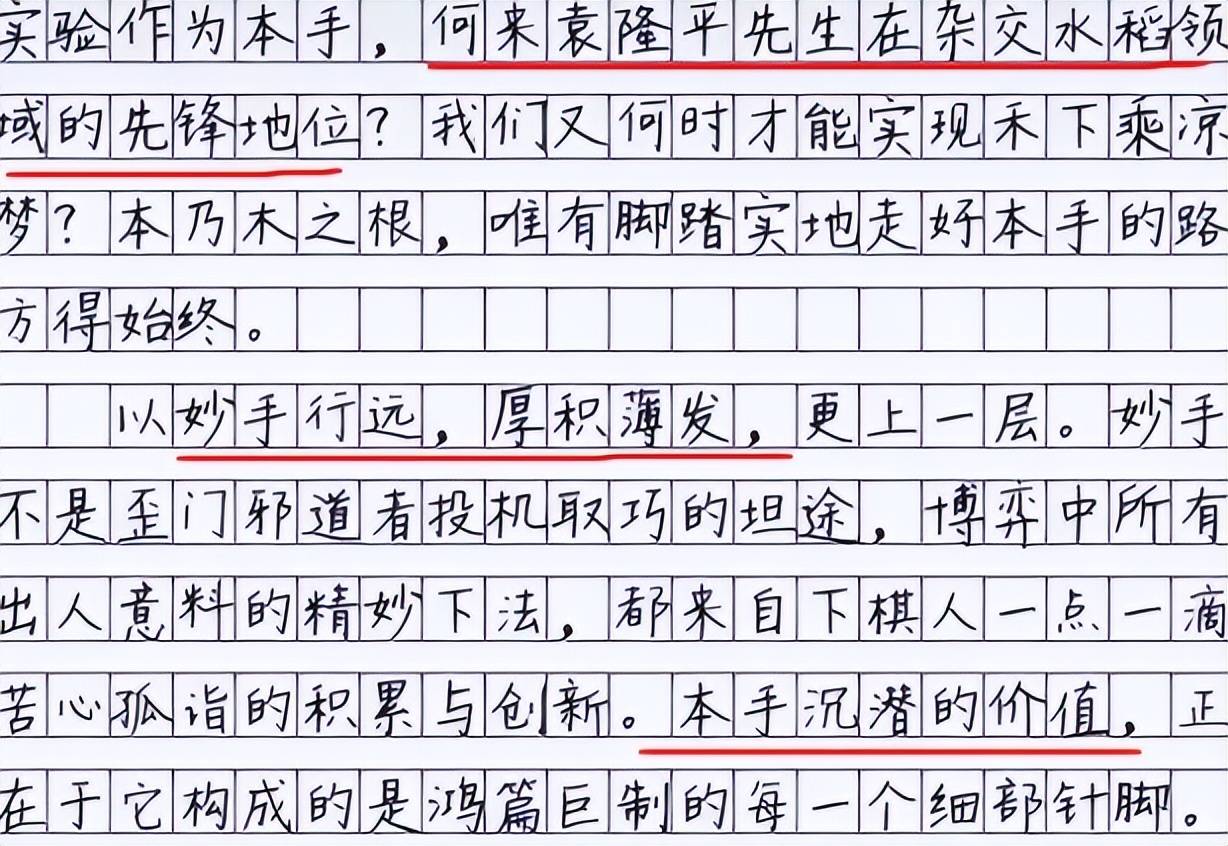 实验作为本手，何来袁隆平先生在杂交水稻领
域的先锋地位？我们又何时才能实现禾下乘凉
梦？本乃木之根，唯有脚踏实地走好本手的路
方得始终。
以妙手行远，厚积薄发，更上一层。妙手
不是歪门邪道者投机取巧的坦途，博弈中所有
出人意料的精妙下法，都来自下棋人一点一滴
苦心孤诣的积累与创新。本手沉潜的价值，正
在于它构成的是鸿篇巨制的每一个细部针脚。